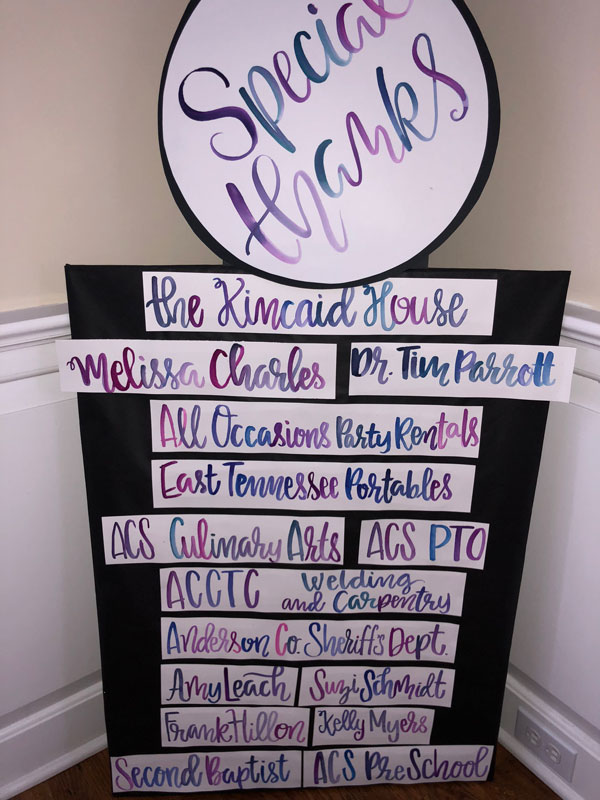 Special
thanks
the Kincaid House
Melissa Charles Dr. Tim Parrott
All Occasions Party Rentals
East Tennessee Portables
ACS Culinary Arts ACS PTO
ACCTC Welding
and Carpentry
Anderson Co. Sheriff's Dept.
Amy Leach Suzi Schmidt
Frank Hillon Kelly Myers
Second Baptist ACS PreSchool